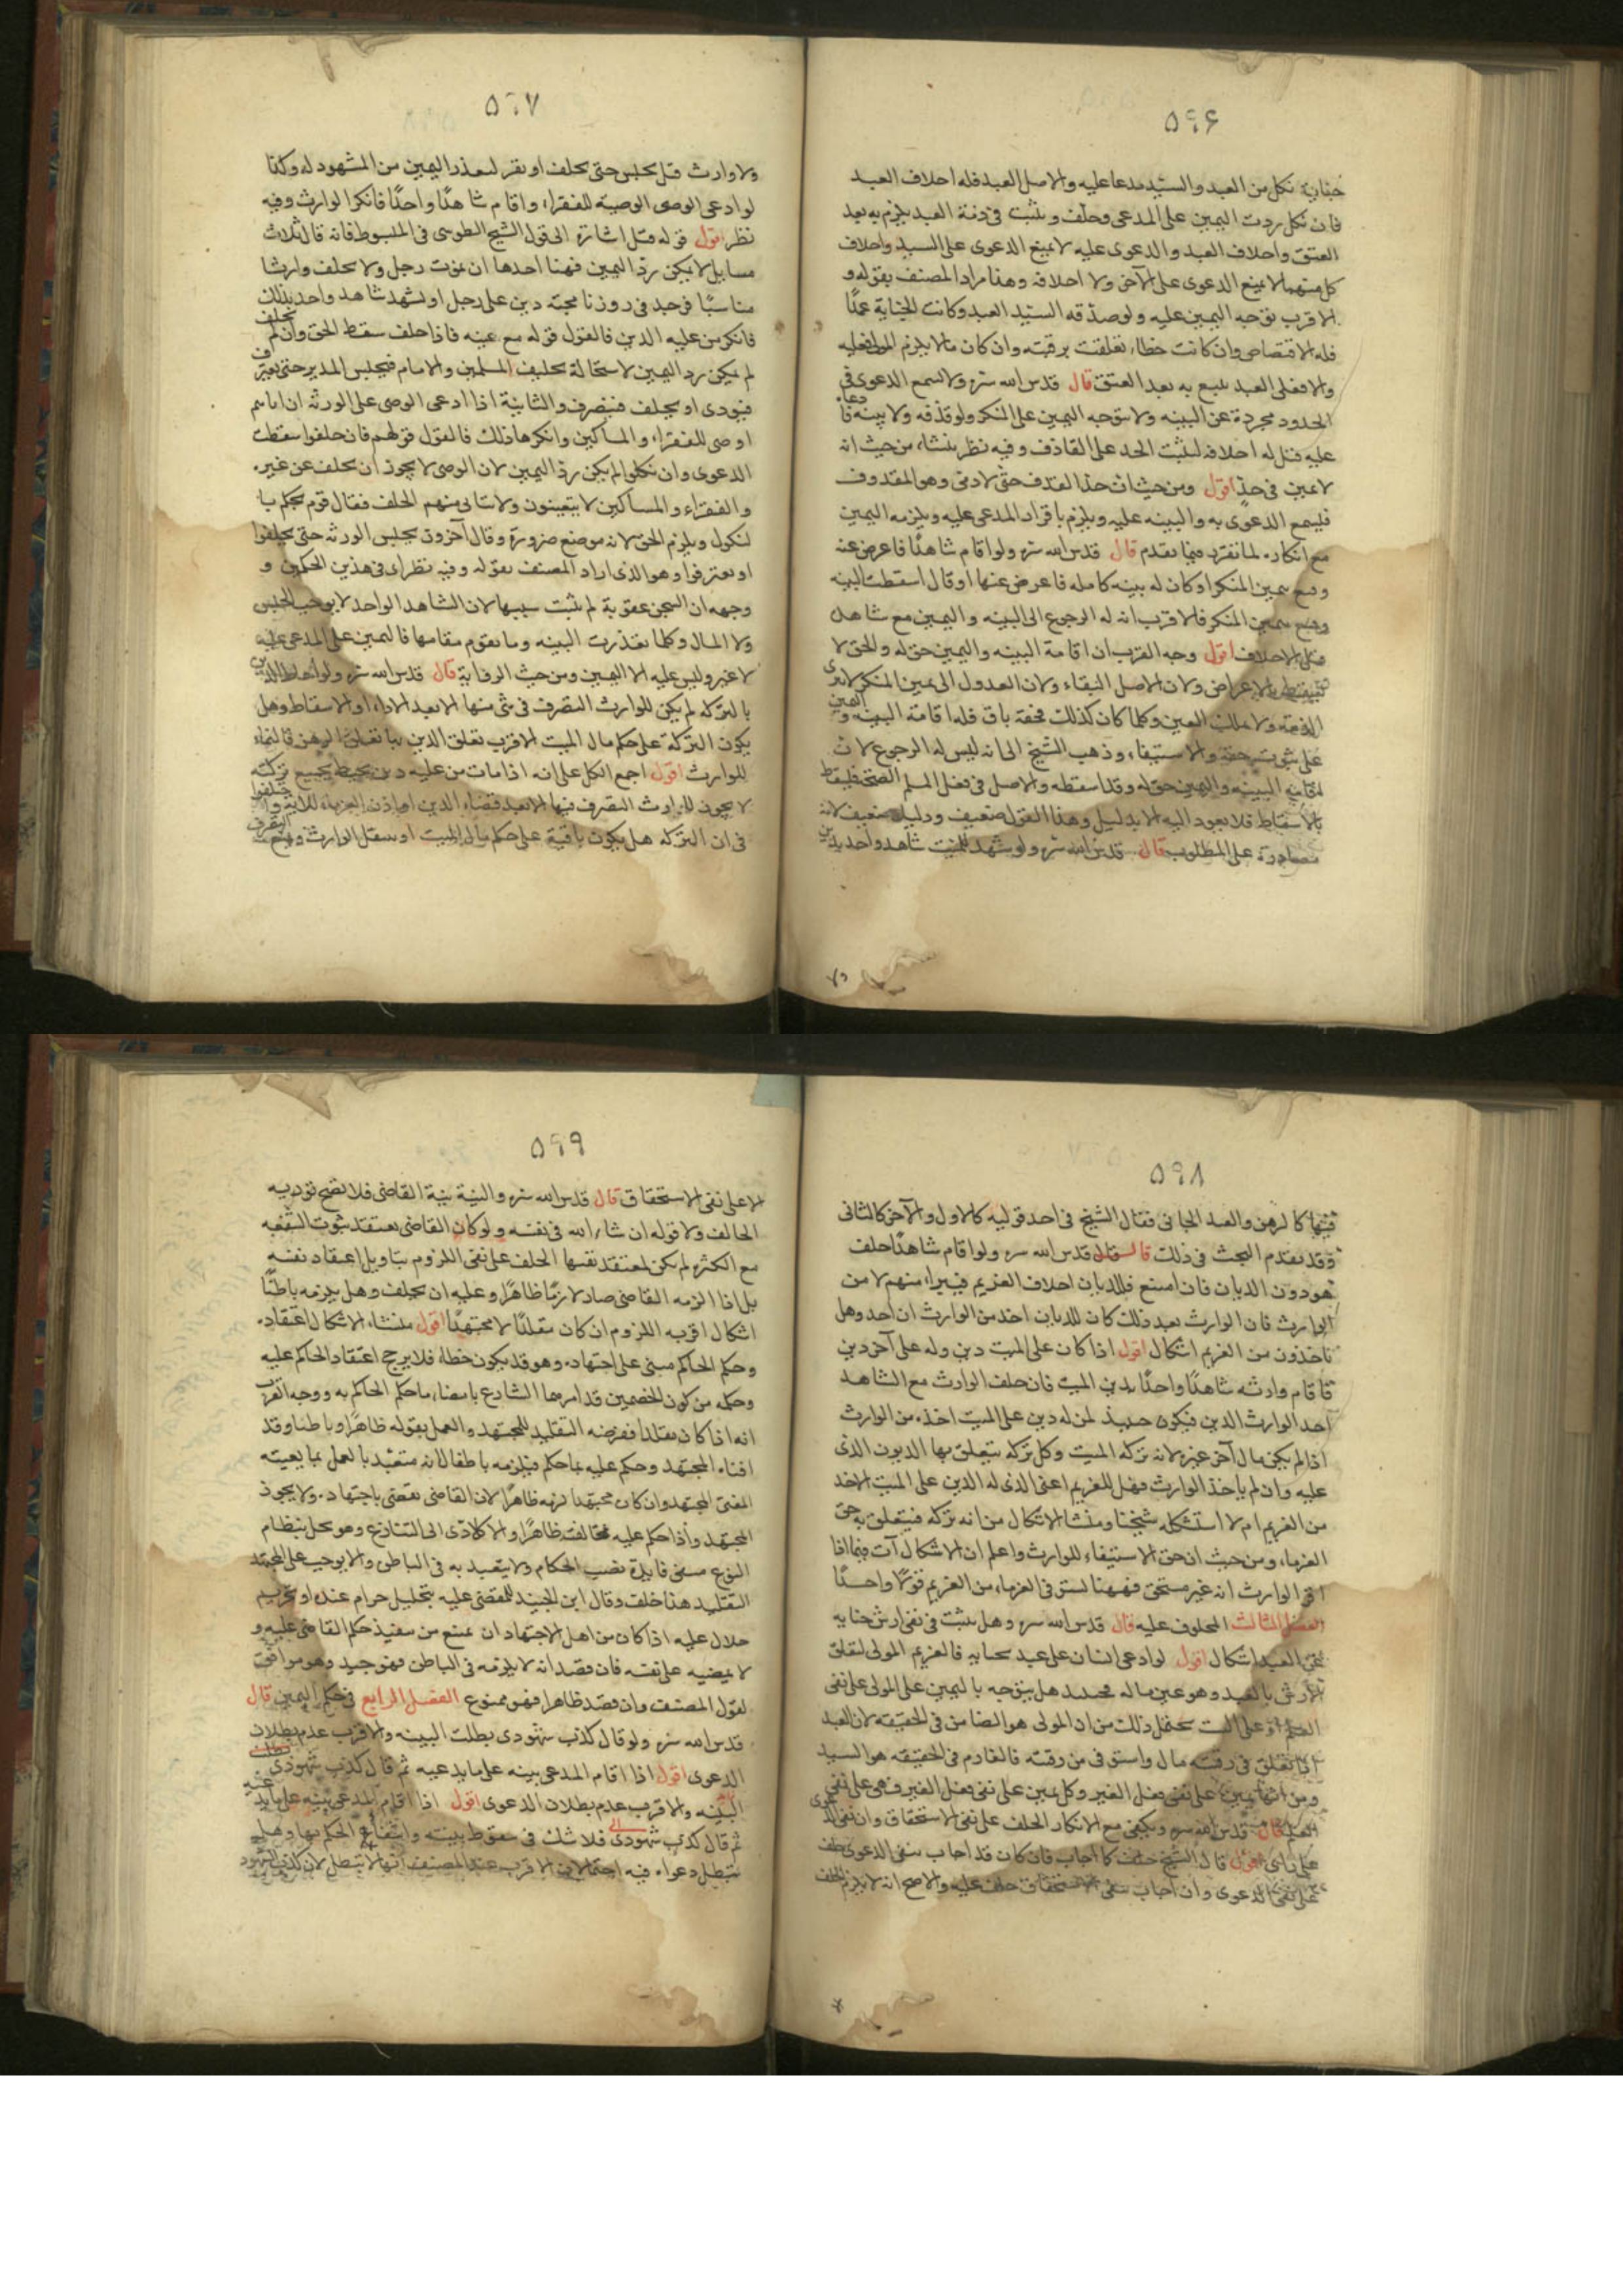 ۵۹۶
جناية نكل من العبد والسيّد مدعا عليه والاصل العبد فله احلاف العبد
فان نكل ردت اليمين على المدعى وحلف ويثبت فى ذمة العبد يلزم به بعد
العتق واحلاف العبد والدعوى عليه لا يمنع الدعوى على السيد واحلاف
كل منهما لا يمنع الدعوى على الآخر ولا احلافه وهذا مراد المصنف بقوله و
الاقرب توجه اليمين عليه ولو صدّقه السيّد العبد وكانت الجناية عمدًا
فله الاقتصاص وان كانت خطاء تعلقت برقبته وان كان مالا يلزم المولى فعليه
والا فعلى العبد يتبع به بعد العتق قال قدس الله سره ولا تسمع الدعوى فى
الحدود مجردة عن البينه ولا يتوجه اليمين على المنكر ولو قذفه ولا بينه فادعاه
عليه قيل له احلافه ليثبت الحد على القاذف وفيه نظر ينشاء من حيث انه
لا يمين فى حدٍ اقول ومن حيث ان حد القذف حق لآدمى وهو المقذوف
فليسمع الدعوى به والبينه عليه ويلزم باقرار المدعى عليه ويلزمه اليمين
مع انكاره لما تقرر فيما تقدم قال قدس الله سره ولو اقام شاهدًا فاعرض عنه
وقنع بيمين المنكر او كان له بينه كامله فاعرض عنها او قال اسقطت البينه
وقنع بيمين المنكر فالاقرب ان له الرجوع الى البينه واليمين مع شاهد
قبل الاحلاف اقول وجه القرب ان اقامة البينه واليمين حق له والحق لا
يسقط بالاعراض ولان الاصل البقاء ولان العدول الى يمين المنكر لا يبرى
الذمه ولا يملك العين وكلما كان كذلك فحقه باق فله اقامة البينه واليمين
على ثبوت حقه والاستيفاء وذهب الشيخ الى انه ليس له الرجوع لان
اقامة البينه واليمين حق له وقد اسقطه والاصل فى فعل المسلم الصحة فيسقط
بالاسقاط فلا يعود اليه الا بدليل وهذا القول ضعيف ودليله ضعيف لانه
مصادرة على المطلوب قال قدس الله سره ولو شهد للميت شاهد واحد بدين
۵۹۷
ولا وارث قيل يحبس حتى يحلف او يقر لتعذر اليمين من المشهود له وكذا
لو ادعى الوصى الوصية للفقراء واقام شاهدًا واحدًا فانكر الوارث وفيه
نظر اقول قوله قيل اشارة الى قول الشيخ الطوسى فى المبسوط فانه قال ثلاث
مسايل لا يمكن ردّ اليمين فيها احدها ان يموت رجل ولا يخلف وارثا
مناسبًا فوجد فى روزنامجته دين على رجل او يشهد شاهد واحد بذلك
فانكر من عليه الدين فالقول قوله مع يمينه فاذا حلف سقط الحق وان لم يحلف
لم يمكن رد اليمين لاستحالة تحليف المسلمين والامام فيحبس المدين حتى يعترف
فيودى او يحلف فينصرف والثانية اذا ادعى الوصى على الورثه ان اباهم
اوصى للفقراء والمساكين وانكروا ذلك فالقول قولهم فان حلفوا سقطت
الدعوى وان نكلوا لم يمكن ردّ اليمين لان الوصى لا يجوز ان يحلف عن غيره
والفقراء والمساكين لا يتعينون ولا يتاتى منهم الحلف فقال قوم يحكم با
لنكول ويلزم الحق لانه موضع ضرورة وقال آخرون يحبس الورثه حتى يحلفوا
او يعترفوا وهو الذى اراد المصنف بقوله وفيه نظر اى فى هذين الحكمين و
وجهه ان السجن عقوبة لم يثبت سببها لان الشاهد الواحد لا يوجب الحبس
ولا المال وكلما تعذرت البينه وما يقوم مقامها فاليمين على المدعى عليه
لا غير وليس عليه الا اليمين ومن حيث الرواية قال قدس الله سره ولو احاط الدين
بالتركه لم يكن للوارث التصرف فى شى منها الا بعد الاداء او الاسقاط وهل
يكون التركة على حكم مال الميت الاقرب تعلق الدين بها تعلق الرهن فالنماء
للوارث اقول اجمع الكل على انه اذا مات من عليه دين يحيط بجميع تركته
لا يجوز للوارث التصرف فيها الا بعد قضاء الدين او اذن الغرماء للاية واختلفوا
فى ان التركه هل يكون باقية على حكم مال الميت او ينتقل الوارث ويمنع التصرف
۵۹۸
فيها كالرهن والعبد الجانى فقال الشيخ فى احد قوليه كالاول والآخر كالثانى
وقد تقدم البحث فى ذلك قال قدس الله سره ولو اقام شاهدًا حلف
هو دون الديان فان امتنع فللديان احلاف الغريم فيبراء منهم لا من
الوارث فان الوارث بعد ذلك كان للديان اخذ من الوارث ان احد وهل
ياخذون من الغريم اشكال اقول اذا كان على الميت دين وله على آخر دين
فاقام وارثه شاهدًا واحدًا بدين الميت فان حلف الوارث مع الشاهد
اخذ الوارث الدين فيكون حينيذ لمن له دين على الميت اخذه من الوارث
اذا لم يكن مال آخر غيره لانه تركه الميت وكل تركه يتعلق بها الديون الذى
عليه وان لم ياخذ الوارث فهل للغريم اعنى الذى له الدين على الميت الاخذ
من الغريم ام لا استشكله شيخنا ومنشا الاشكال من انه تركه فيتعلق به حق
الغرماء ومن حيث ان حق الاستيفاء للوارث واعلم ان الاشكال آت فيما اذا
اقر الوارث انه غير مستحق فههنا ليستوفى الغرماء من الغريم قولًا واحدًا
الفصل الثالث المحلوف عليه قال قدس الله سره وهل يثبت فى نفى ارش جنايه
العبد اشكال اقول لو ادعى انسان على عبد بجنايه فالغريم المولى لتعلق
الارش بالعبد وهو عين ماله فحينيذ هل يتوجه باليمين على المولى على نفى
العلم او على البت يحتمل ذلك من ان المولى هو الضامن فى الحقيقه لان العبد
اذا تعلق فى رقبته مال واستوفى من رقبته فالغارم فى الحقيقه هو السيد
ومن انها يمين على نفى فعل الغير وكل يمين على نفى فعل الغير فهى على نفى
العلم قال قدس الله سره ويكفى مع الانكار الحلف على نفى الاستحقاق وان نفى الدعوى
على راى اقول قال الشيخ حلف كما اجاب فان كان قد اجاب بنفى الدعوى حلف
على نفى الدعوى وان اجاب بنفى الاستحقاق حلف عليه والاصح انه لا يلزم الحلف
۵۹۹
الا على نفى الاستحقاق قال قدس الله سره والنية نية القاضى فلا يصح تورية
الحالف ولا قوله ان شاء الله فى نفسه ولو كان القاضى يعتقد ثبوت الشفعه
مع الكثره لم يكن لمعتقد نفيها الحلف على نفى اللزوم بتاويل اعتقاد نفسه
بل اذا الزمه القاضى صار لازمًا ظاهرًا وعليه ان يحلف وهل يلزمه باطنًا
اشكال اقربه اللزوم ان كان مقلدًا لا مجتهدًا اقول منشاء الاشكال اعتقاده
وحكم الحاكم مبنى على اجتهاده وهو قد يكون خطاء فلا يرجح اعتقاد الحاكم عليه
وحكمه من كون الخصمين قد امرهما الشارع بامضاء ما حكم الحاكم به ووجه القرب
انه اذا كان مقلدا ففرضه التقليد للمجتهد والعمل بقوله ظاهرًا وباطنا وقد
افتاه المجتهد وحكم عليه بما حكم فيلزمه باطنا لانه متعبّد بالعمل بما يفتيه
المفتى المجتهد وان كان مجتهدا لزمه ظاهرًا لان القاضى يقضى باجتهاده ولا يجوز
المجتهد واذا حكم عليه مخالفته ظاهرًا والا لادّى الى التنازع وهو يخل بنظام
النوع فينتفى فايدة نصب الحكام ولا يتعبد به فى الباطن والا لوجب على المجتهد
التقليد هذا خلف وقال ابن الجنيد للمقضى عليه بتحليل حرام عنده او تحريم
حلال عليه اذا كان من اهل الاجتهاد ان يمنع من تنفيذ حكم القاضى عليه و
لا يمضيه على نفسه فان قصد انه لا يلزمه فى الباطن فهو جيد وهو موافق
لقول المصنف وان قصد ظاهرا فهو ممنوع الفصل الرابع فى حكم اليمين قال
قدس الله سره ولو قال كذب شهودى بطلت البينه والاقرب عدم بطلان
الدعوى اقول اذا اقام المدعى بينه على ما يدعيه ثم قال كذب شهودى بطلت
البينه والاقرب عدم بطلان الدعوى اقول اذا اقام المدعى بينه على ما يدعيه
ثم قال كذب شهودى فلا شك فى سقوط بينته وانتفاع الحكم بها وهل
يبطل دعواه فيه احتمالان الاقرب عند المصنف انها لا تبطل لان كذب الشهود